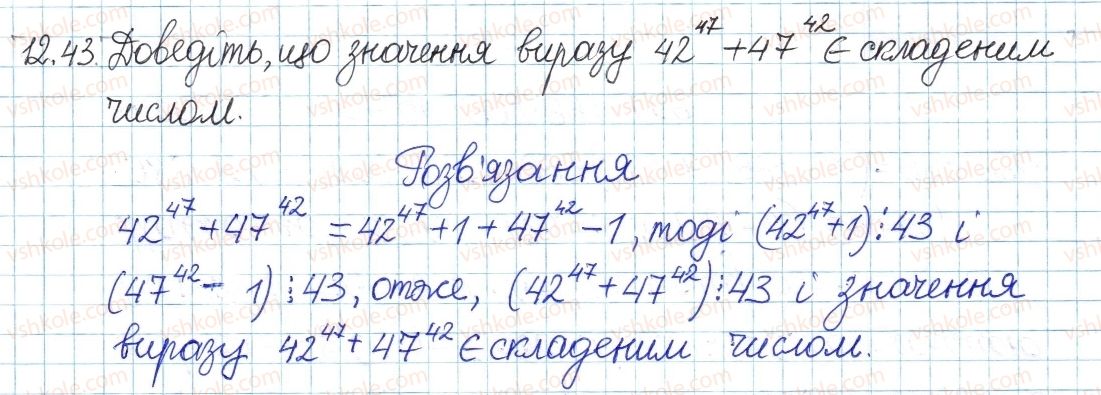 12.43. Доведіть, що значення виразу 42⁴⁷ + 47⁴² є складеним
числом.
Розв'язання
42⁴⁷ + 47⁴² = 42⁴⁷ + 1 + 47⁴² - 1, тоді (42⁴⁷ + 1) ⋮ 43 і
(47⁴² - 1) ⋮ 43, отже, (42⁴⁷ + 47⁴²) ⋮ 43 і значення
виразу 42⁴⁷ + 47⁴² є складеним числом.